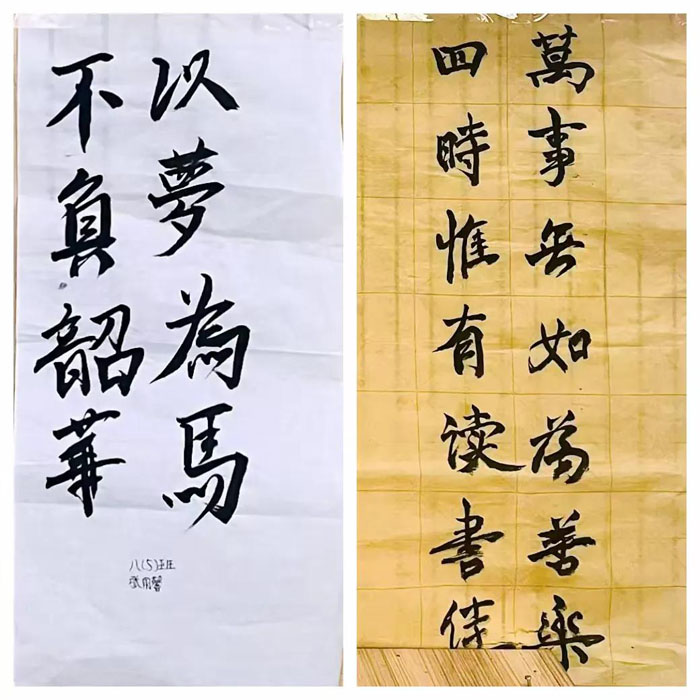 以夢為馬
不負韶華
八(5)班
萬事無如為善樂
四時惟有读書佳